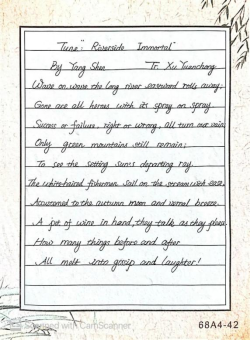 Tune: "Riverside Immortal"
By Yang Shen Tr. Xu Yuanchong
Wave on wave the long river eastward rolls away;
Gone are all heroes with its spray on spray.
Success or failure, right or wrong, all turn out vain;
Only green mountains still remain;
To see the setting sun's departing ray.
The white-haired fishermen sail on the stream with ease,
Accustomed to the autumn moon and vernal breeze.
A pot of wine in hand, they talk as they please.
How many things before and after
All melt into gossip and laughter!
Scanned with CamScanner
68A4-42